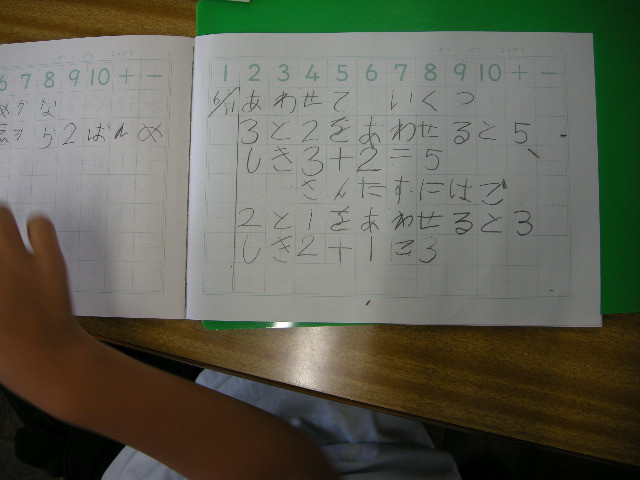 6 7 8 9 10 + -
めがな
から2ばんめ
1 2 3 4 5 6 7 8 9 10 + -
6/11 あわせて いくつ
3と2をあわせると5
しき3+2=5
さんたすにはご
2と1をあわせると3
しき2+1=3